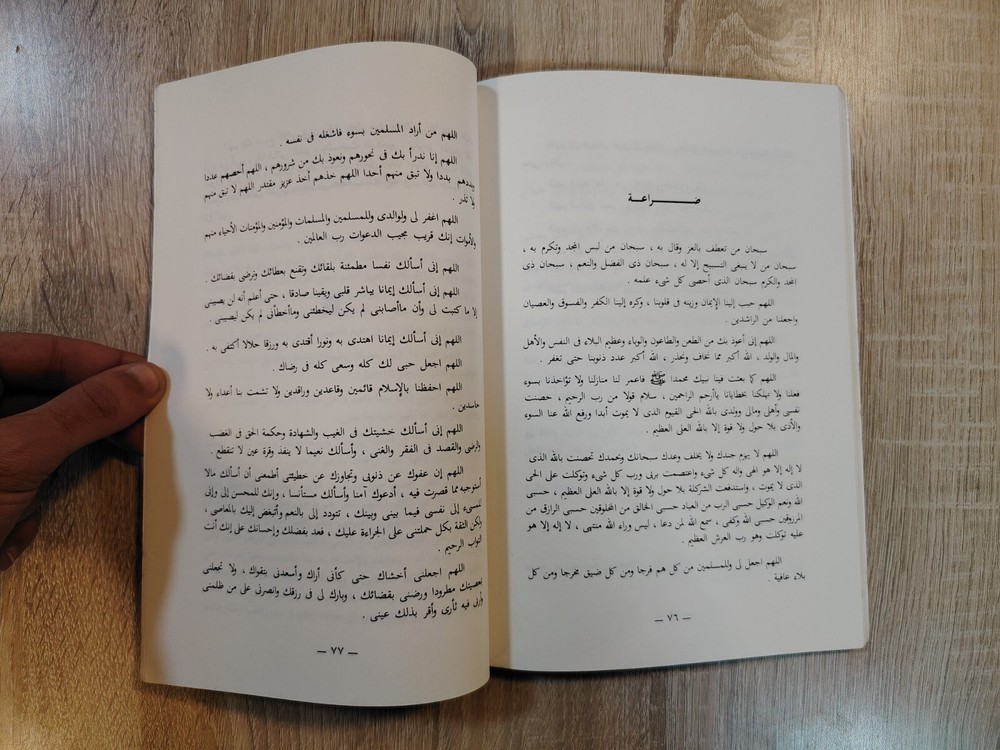 ضراعة
سبحان من تعطف بالعز وقال به ، سبحان من لبس المجد وتكرم به ،
سبحان من لا ينبغى التسبيح إلا له ، سبحان ذى الفضل والنعم ، سبحان ذى
المجد والكرم سبحان الذى أحصى كل شىء علمه .
اللهم حبب إلينا الإيمان وزينه فى قلوبنا ، وكره إلينا الكفر والفسوق والعصيان
واجعلنا من الراشدين .
اللهم إنى أعوذ بك من الطعن والطاعون والوباء وعظيم البلاء فى النفس والأهل
والمال والولد ، الله أكبر مما نخاف ونحذر ، الله أكبر عدد ذنوبنا حتى تغفر .
اللهم كما بعثت فينا نبيك محمدا ﷺ فاعمر لنا منازلنا ولا تؤاخذنا بسوء
فعلنا ولا تهلكنا بخطايانا ياأرحم الراحمين ، سلام قولا من رب الرحيم ، حصنت
نفسى وأهلى ومالى وولدى بالله الحى القيوم الذى لا يموت أبدا ورفع الله عنا السوء
والأذى بلا حول ولا قوة إلا بالله العلى العظيم .
اللهم لا يهزم جندك ولا يخلف وعدك سبحانك وبحمدك تحصنت بالله الذى
لا إله إلا هو الهى واله كل شىء واعتصمت بربى ورب كل شىء وتوكلت على الحى
الذى لا يموت ، واستدفعت الشركلة بلا حول ولا قوة إلا بالله العلى العظيم ، حسبى
الله ونعم الوكيل حسبى الرب من العباد حسبى الخالق من المخلوقين حسبى الرازق من
المرزوقين حسبى الله وكفى ، سمع الله لمن دعا ، ليس وراء الله منتهى ، لا إله إلا هو
عليه توكلت وهو رب العرش العظيم .
اللهم اجعل لى وللمسلمين من كل هم فرجا ومن كل ضيق مخرجا ومن كل
بلاء عافية .
— ٧٦ —
اللهم من أراد المسلمين بسوء فاشغله فى نفسه .
اللهم إنا ندرأ بك فى نحورهم ونعوذ بك من شرورهم ، اللهم أحصهم عددا
وبددهم بددا ولا تبق منهم أحدا اللهم خذهم أخذ عزيز مقتدر اللهم لا تبق منهم
ولا تذر .
اللهم اغفر لى ولوالدى وللمسلمين والمسلمات والمؤمنين والمؤمنات الأحياء منهم
والأموات إنك قريب مجيب الدعوات رب العالمين .
اللهم إنى أسألك نفسا مطمئنة بلقائك وتقنع بعطائك وترضى بقضائك .
اللهم إنى أسألك إيمانا يباشر قلبى ويقينا صادقا ، حتى أعلم أنه لن يصيبنى
إلا ما كتبت لى وأن ماأصابنى لم يكن ليخطئنى وماأخطأنى لم يكن ليصيبنى .
اللهم إنى أسألك إيمانا اهتدى به ونورا أقتدى به ورزقا حلالا أكتفى به .
اللهم اجعل حبى لك كله وسعى كله فى رضاك .
اللهم احفظنا بالإسلام قائمين وقاعدين وراقدين ولا تشمت بنا أعداء ولا
حاسدين .
اللهم إنى أسألك خشيتك فى الغيب والشهادة وحكمة الحق فى الغضب
والرضى والقصد فى الفقر والغنى ، وأسألك نعيما لا ينفذ وقرة عين لا تنقطع .
اللهم إن عفوك عن ذنوبى وتجاوزك عن خطيئتى أطمعنى أن أسألك مالا
أستوجبه مما قصرت فيه ، أدعوك آمنا وأسألك مستأنسا ، وإنك للمحسن إلى وإنى
للمسىء إلى نفسى فيما بينى وبينك ، تتودد إلى بالنعم وأتبغض إليك بالمعاصى ،
ولكن الثقة بكل حملتنى على الجراءة عليك ، فعد بفضلك وإحسانك على إنك أنت
التواب الرحيم .
اللهم اجعلنى أخشاك حتى كأنى أراك وأسعدنى بتقواك ، ولا تجعلنى
بمعصيتك مطرودا ورضنى بقضائك ، وبارك لى فى رزقك وانصرنى على من ظلمنى
وأرنى فيه ثأرى وأقر بذلك عينى .
— ٧٧ —